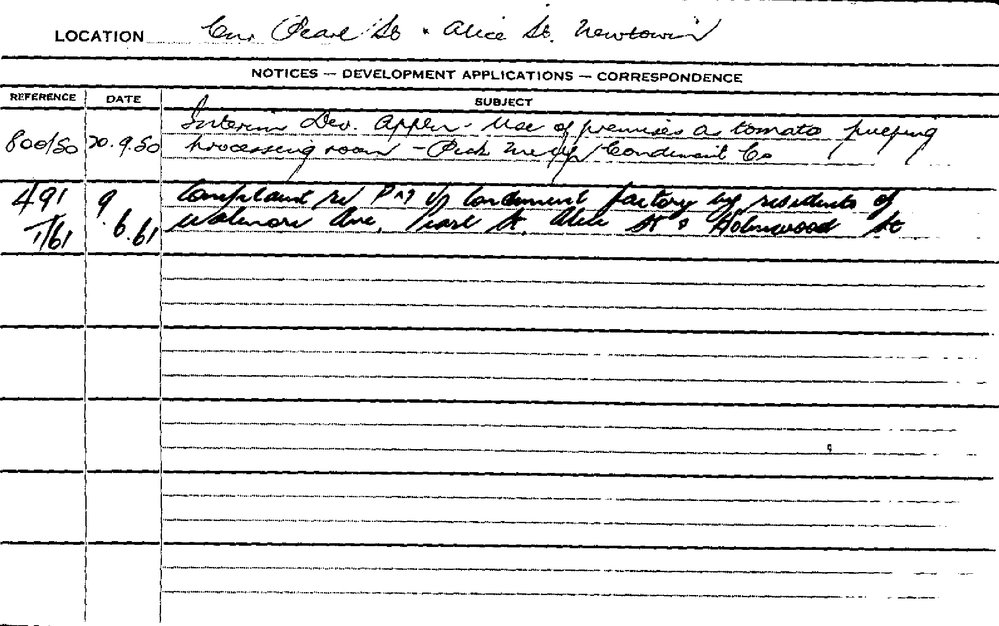 LOCATION Cnr Pearl St & Alice St. Newtown
NOTICES — DEVELOPMENT APPLICATIONS — CORRESPONDENCE
REFERENCE DATE SUBJECT
Interim Dev. Appln - Use of premises as tomato pulping
800/50 20.9.50 processing room - Pick Me Up Condiment Co
491 9 Complaint re P M U Condiment factory by residents of
1/61 .6.61 Walenore Ave, Pearl St. Alice St & Holmwood St